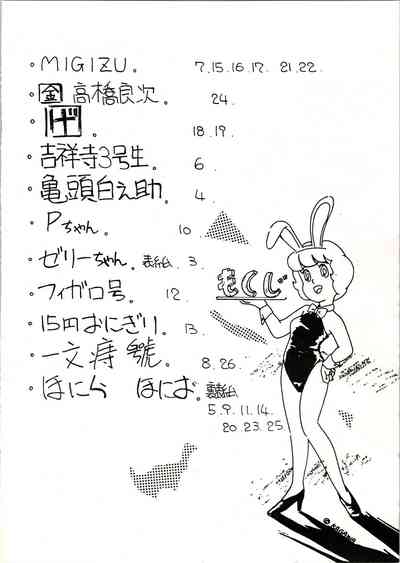 ・MIGIZU。 7,15.16.17. 21.22.
・金 高橋良次。 24.
・げ。 18.19.
・吉祥寺3号生。 6.
・亀頭白之助。 4.
・Pちゃん。 10.
・ゼリーちゃん。表紙. 3.
・フィガロ号。 12.
・15円おにぎり。 13.
・一文痔 號。 8.26.
・ほにゃら ほにお。裏表紙
5.9.11.14.
20.23.25.
もくじ